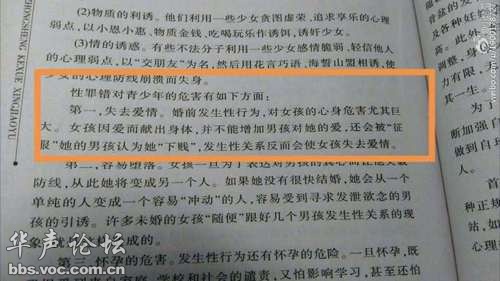 ZHONGSHENG KEXUE XINGJIAOYU
(2)物质的利诱。他们利用一些少女贪图虚荣、追求享乐的心理
弱点,以小恩小惠,物质金钱、吃喝玩乐作诱饵,诱奸少女。
(3)情的诱惑。有些不法分子利用一些少女感情脆弱、轻信他人
的心理弱点,以“交朋友”为名,然后用花言巧语、海誓山盟相诱,使
少女的心理防线崩溃而失身。
性罪错对青少年的危害有如下方面:
第一,失去爱情。婚前发生性行为,对女孩的心身危害尤其巨
大。女孩因爱而献出身体,并不能增加男孩对她的爱,还会被“征
服”她的男孩认为她“下贱”,发生性关系反而会使女孩失去爱情。
第二,容易堕落。女孩一旦为了表达对男孩的真心而让他突破
防线,从此将变成另一个人。如果她没有很快结婚,她会从一个
单纯的人变成一个容易“冲动”的人,容易受到寻求发泄欲念的男
孩的引诱。许多未婚的女孩“随便”跟好几个男孩发生性关系的现
象
成的。
第三,怀孕的危害。发生性行为还有怀孕的危险。一旦怀孕,既
学校和社会的谴责,又怕影响学习,甚至还怕
音盆的发
及各种妊
高。此外
调整,身
力有限,
其一生。
断加强自
做到自珍
种正规
站,如
的不良
华声论坛
bbs.voc.com.cn